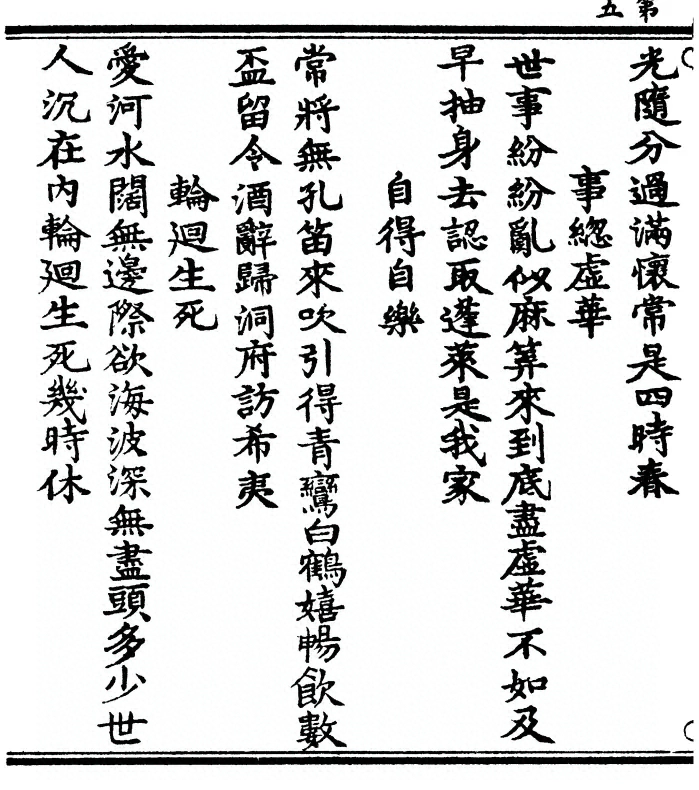 第五
光隨分過滿懷常是四時春
事緫虛華
世事紛紛亂似麻筭來到底盡虛華不如及
早抽身去認取蓬萊是我家
自得自樂
常將無孔笛來吹引得青鸞白鶴嬉暢飲數
盃留令酒辭歸洞府訪希夷
輪迴生死
愛河水闊無邊際欲海波深無盡頭多少世
人沉在內輪迴生死幾時休